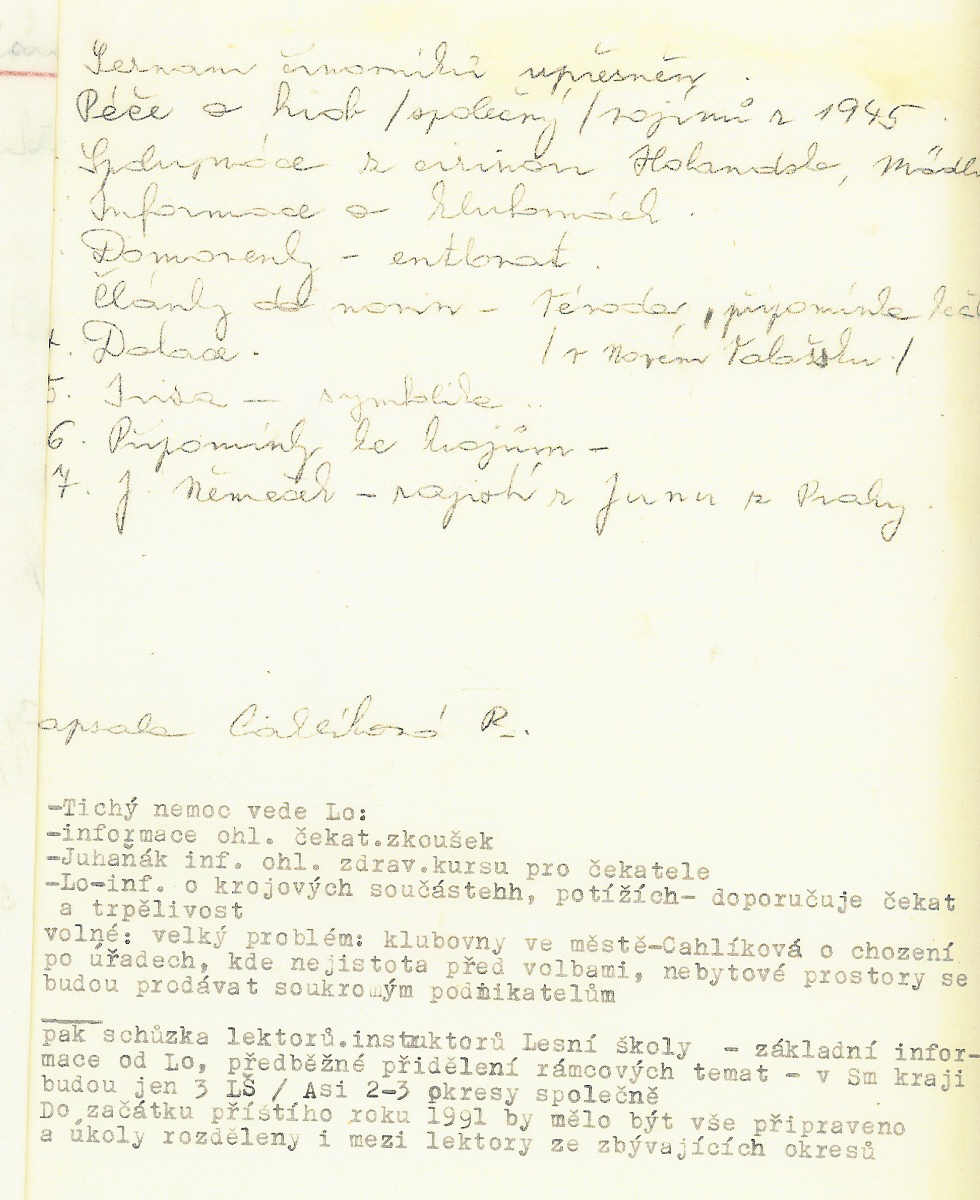 Seznam činovníků upřesněn.
Péče o hrob /společný/ vojínů z 1945.
Spolupráce s Holandska,
Informace o klubovnách.
Domovenky - 
Články do novin - připomínka
4. Dotace. / v Novém Valašsku /
5. symbolika ..
6. Připomínky ke krojům -
7. J. Němeček - zajistí z Junu z Prahy.
apsala Cahlíková R.
-Tichý nemoc vede Lo:
-informace ohl. čekat.zkoušek
-Juhaňák inf. ohl. zdrav.kursu pro čekatele
-Lo-inf. o krojových součástehh, potížích- doporučuje čekat
a trpělivost
volné: velký problém: klubovny ve městě-Cahlíková o chození
po úřadech, kde nejistota před volbami, nebytové prostory se
budou prodávat soukromým podnikatelům
pak schůzka lektorů.instruktorů Lesní školy - základní infor-
mace od Lo, předběžné přidělení rámcových temat - v Sm kraji
budou jen 3 LŠ / Asi 2-3 okresy společně
Do začátku příštího roku 1991 by mělo být vše připraveno
a úkoly rozděleny i mezi lektory ze zbývajících okresů